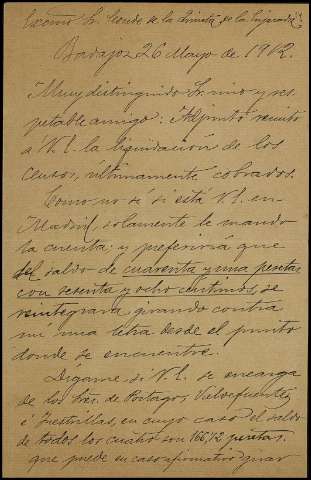 Excmo Sr. Conde de la Quinta de la Enjarada
Badajoz 26 Mayo de 1912.
Muy distinguido Sr. mio y res-
petable amigo: Adjunto remito
a V.E. la liquidación de los
censos, últimamente cobrados.
Como no sé si está V.E. en
Madrid, solamente le mando
la cuenta; y preferiría que
del saldo de cuarenta y una pesetas
con sesenta y ocho centimos, se
reintegrara girando contra
mí una letra desde el punto
donde se encuentre.
Dígame si V.E. se encarga
de los de Portago,
é Trestrillas, en cuyo caso el saldo
de todos los cuatro son 166,72 pesetas.
que puede en caso afirmativo girar